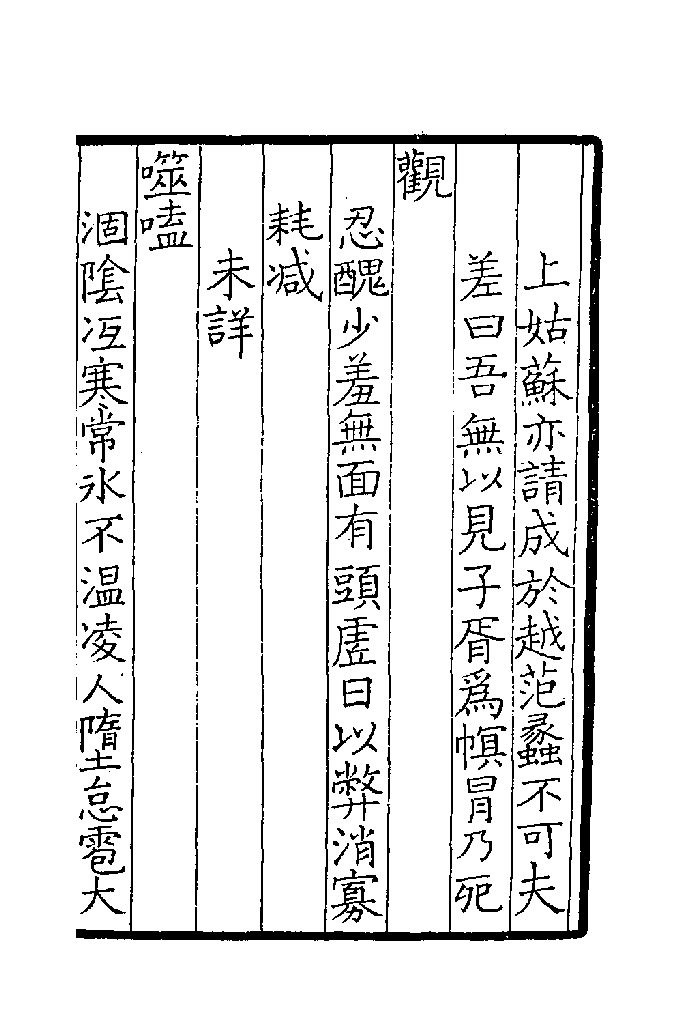 上姑蘇亦請成於越范蠡不可夫
差曰吾無以見子胥爲幎冒乃死
觀
忍醜少羞無面有頭虗日以弊消寡
耗減
未詳
噬嗑
涸陰冱寒常氷不温凌人墮怠雹大